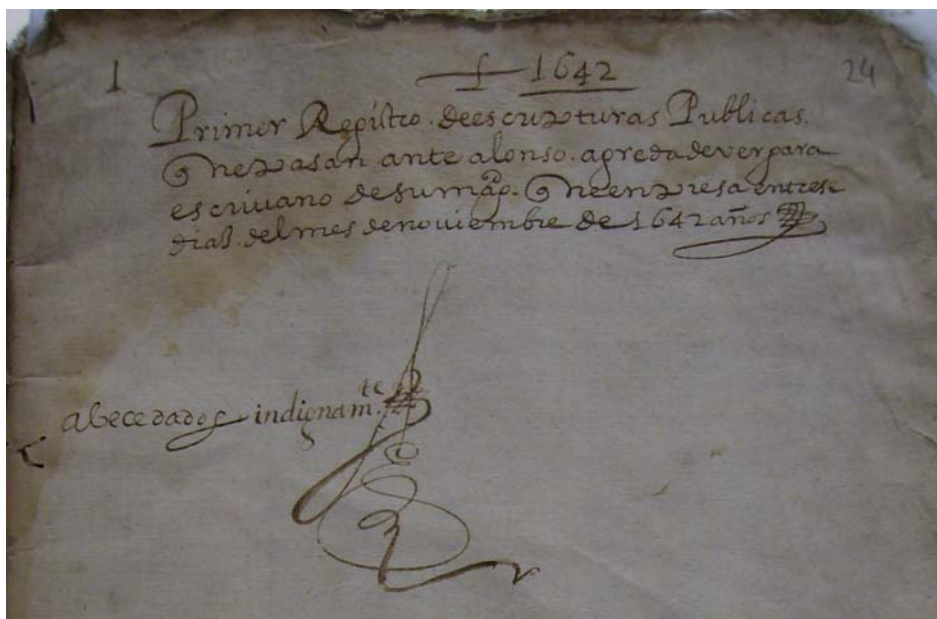 1 † 1642 24
Primer Registro. de escripturas Publicas.
que pasan ante alonso. agreda de vergara
escriuano de su magd. que enpiesa en trese
dias. del mes de nouiembre de 1642 años
abecedados indignamte